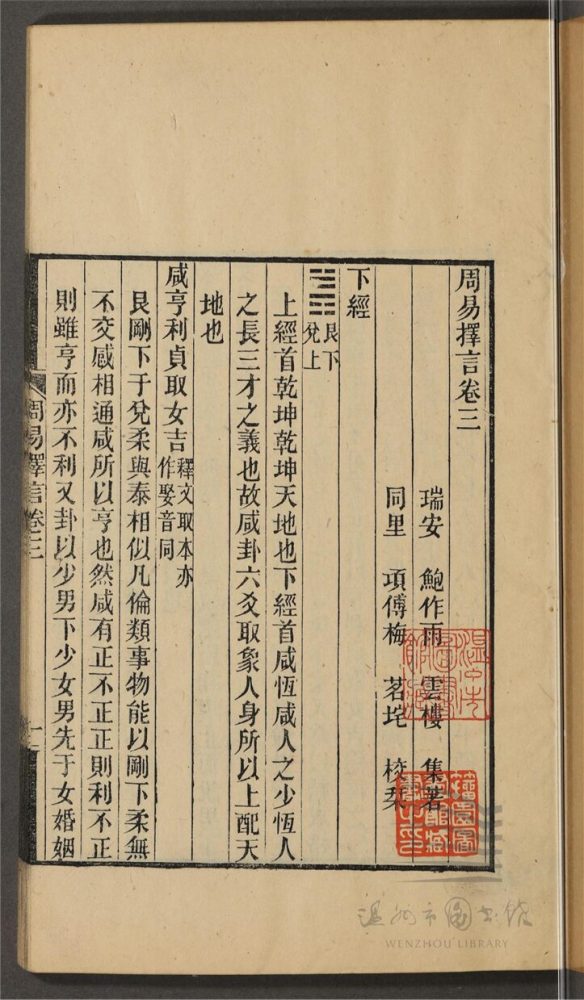 周易擇言卷三
瑞安　鮑作雨　雲樓　集著
同里　項傅梅　茗垞　校栞
下經
艮下
兌上
上經首乾坤乾坤天地也下經首咸恆咸人之少恆人
之長三才之義也故咸卦六爻取象人身所以上配天
地也
咸亨利貞取女吉釋文取本亦
作娶音同
艮剛下于兌柔與泰相似凡倫類事物能以剛下柔無
不交感相通咸所以亨也然咸有正不正正則利不正
則雖亨而亦不利又卦以少男下少女男先于女婚姻
周易擇言卷三
一
溫州市圖書館
WENZHOU LIBRARY